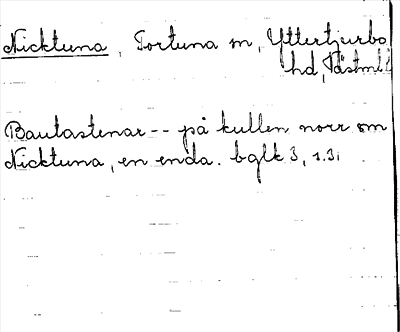 Nicktuna, Tortuna sn, Yttertjurbo
hd, Västml.
Bautastenar -- på kullen norr om
Nicktuna, en enda. bglk 3, s.31